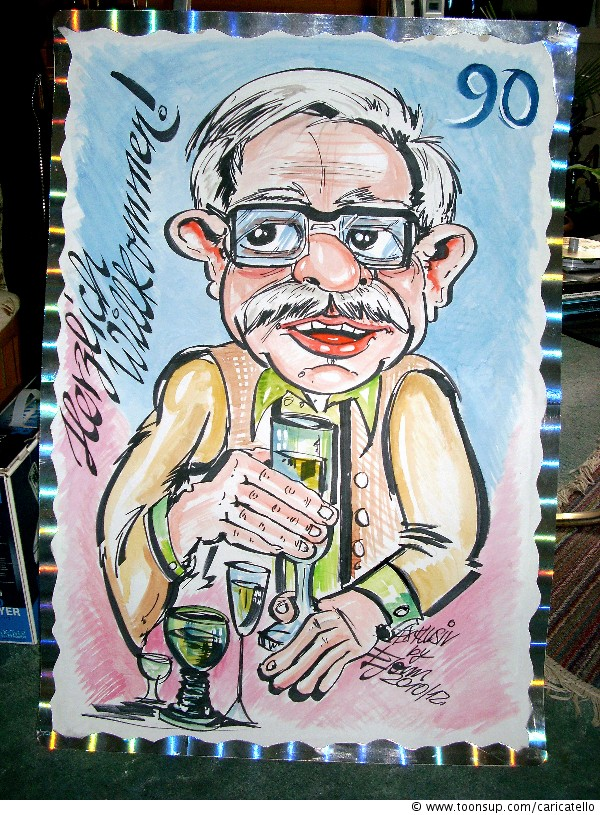 Herzlich
Willkommen!
90
by
2010/12.
YER
© www.toonsup.com/caricatello